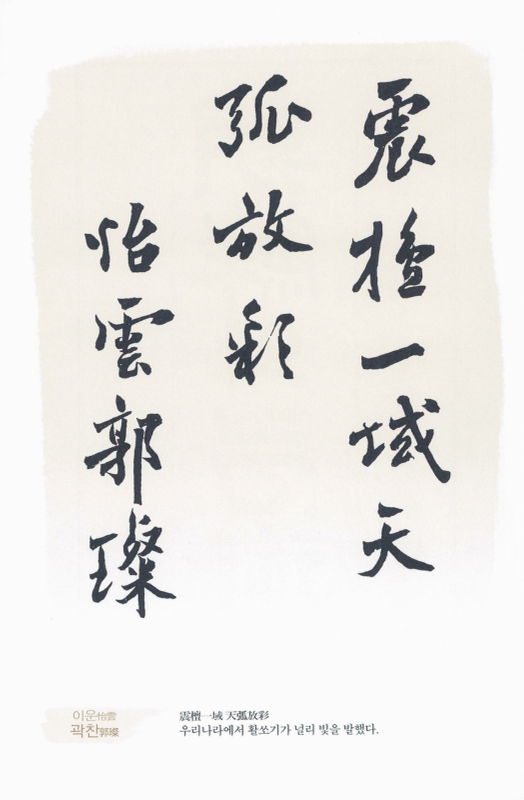 震檀一域天
弧放彩
怡雲郭璨
이운怡雲
곽찬郭璨
震檀一域 天弧放彩
우리나라에서 활쏘기가 널리 빛을 발했다.